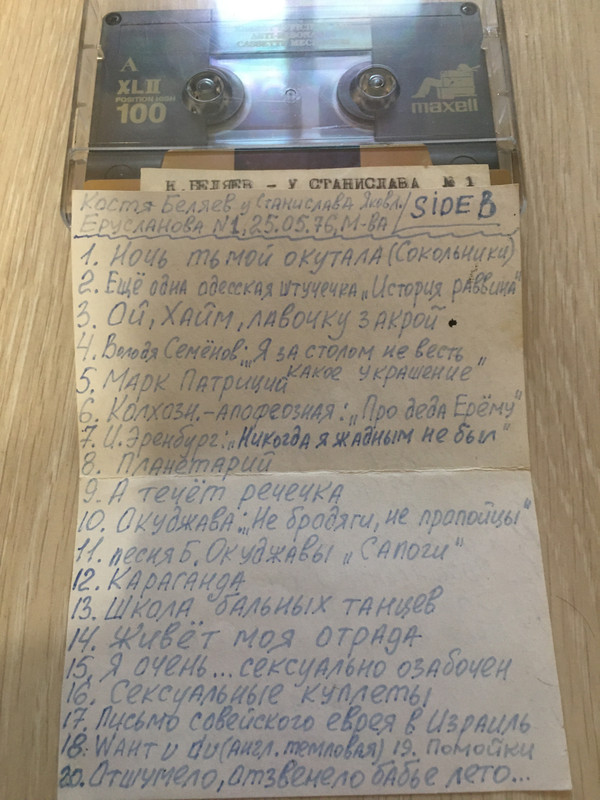 A
XL II
POSITION HIGH
100
maxell
К. БЕЛЯЕВ - У СТАНИСЛАВА № 1
Костя Беляев у Станислава Яковл. / SIDE B
Ерусланова N1, 25.05.76, М-ва
1. Ночь тьмой окутала (Сокольники)
2. Ещё одна одесская штучечка „История раввина"
3. Ой, Хайм, лавочку закрой
4. Володя Семёнов: „Я за столом не весть
какое украшение"
5. Марк Патриций
6. Колхозн.-апофеозная: „Про деда Ерёму"
7. И. Эренбург: „Никогда я жадным не был"
8. Планетарий
9. А течёт речечка
10. Окуджава: „Не бродяги, не пропойцы"
11. песня Б. Окуджавы „Сапоги"
12. Караганда
13. Школа бальных танцев
14. Живёт моя отрада
15. Я очень... сексуально озабочен
16. Сексуальные куплеты
17. Письмо совейского еврея в Израиль
18. Want u du (англ. темповая) 19. Помойки
20. Отшумело, отзвенело бабье лето...